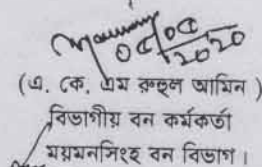 04/04/2020
(এ. কে, এম রুহুল আমিন )
বিভাগীয় বন কর্মকর্তা
ময়মনসিংহ বন বিভাগ।